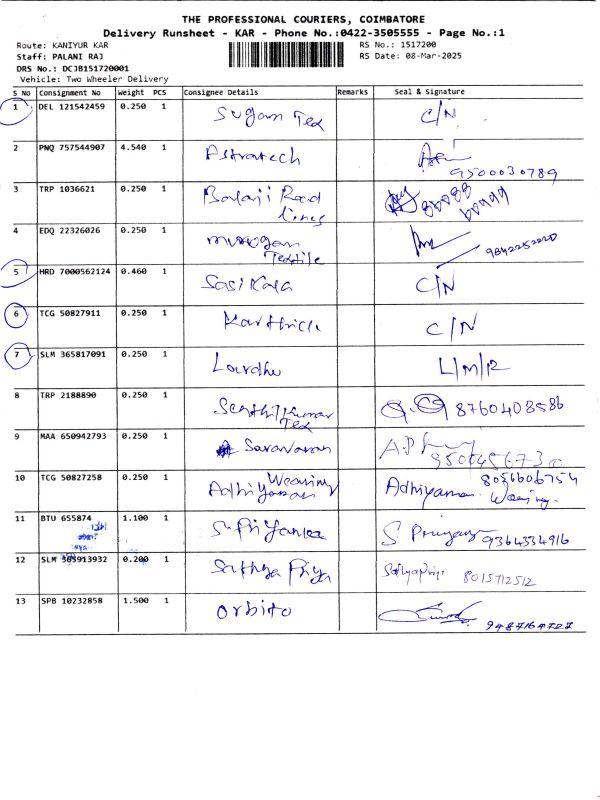 THE PROFESSIONAL COURIERS, COIMBATORE
Delivery Runsheet - KAR - Phone No.:0422-3505555 - Page No.:1
Route: KANIYUR KAR
RS No.: 1517200
Staff: PALANI RAJ
RS Date: 08-Mar-2025
DRS No.: DCJB151720001
Vehicle: Two Wheeler Delivery
S No Consignment No Weight PCS Consignee Details Remarks Seal & Signature
1 DEL 121542459 0.250 1 Sugam Tex C/N
2 PNQ 757544907 4.540 1 Astratech 9500030789
3 TRP 1036621 0.250 1 Balaji Road
lines
4 EDQ 22326026 0.250 1 murugan
Textile 9842252220
5 HRD 7000562124 0.460 1 Sasi Kala C/N
6 TCG 50827911 0.250 1 Karthick C/N
7 SLM 365817091 0.250 1 Lourdhu L/M/R
8 TRP 2188890 0.250 1 Senthil Kumar
Tex 8760408586
9 MAA 650942793 0.250 1 Saravanan
10 TCG 50827258 0.250 1 Adhiyaman Weaving 8056606754
Adhiyaman Weaving.
11 BTU 655874 1.100 1 S. Priyanka S Priyanka 9364334916
12 SLM 365913932 0.200 1 Sathya Priya Sathyapriya 8015712512
13 SPB 10232858 1.500 1 Orbito 9487164727